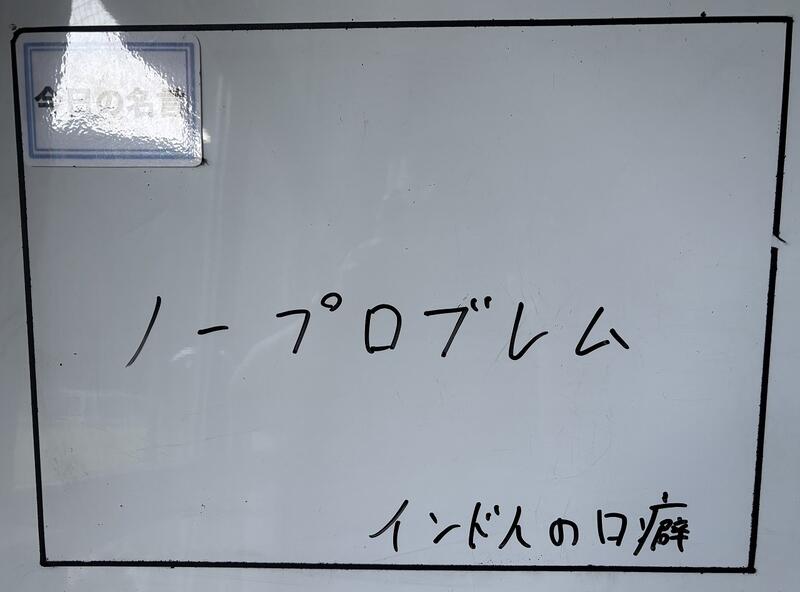 今日の名言
ノープロブレム
インド人の口癖